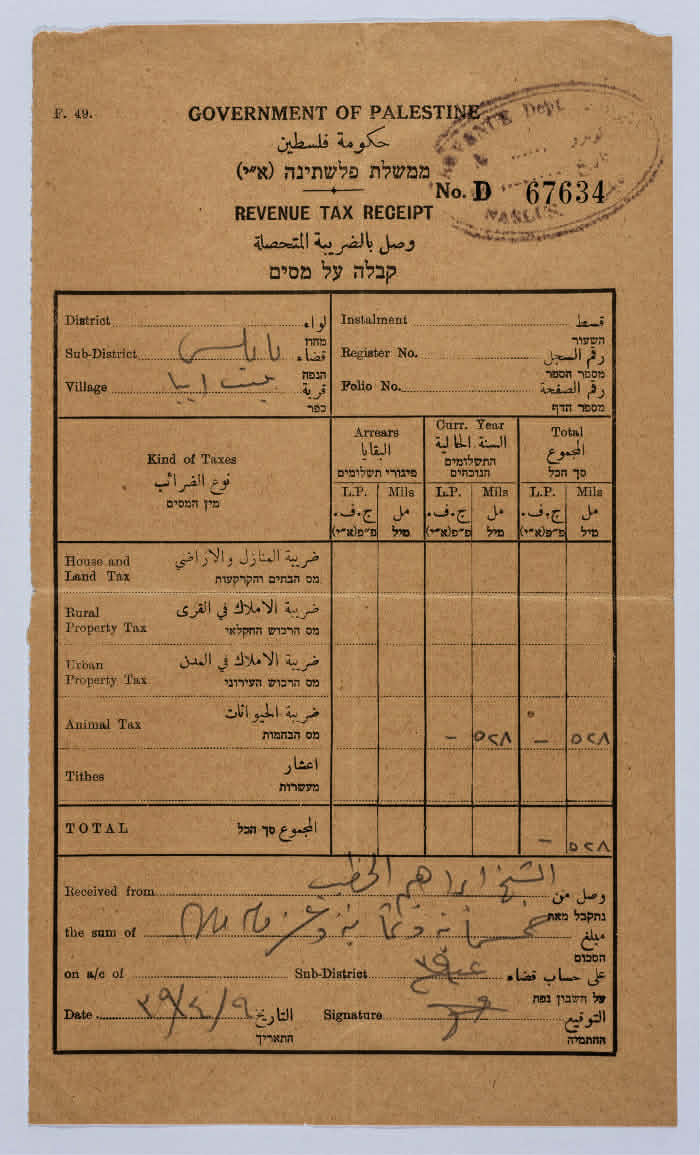 F. 49.
GOVERNMENT OF PALESTINE
حكومة فلسطين
ממשלת פלשתינה (א״י)
REVENUE Dept
No. D 67634
NABLUS
REVENUE TAX RECEIPT
وصل بالضريبة المتحصلة
קבלה על מסים
District لواء
מחוז
Sub-District نابلس قضاء
הנפה
Village بيت ايبا قرية
כפר
Instalment قسط
השעור
Register No. رقم السجل
מספר הספר
Folio No. رقم الصفحة
מספר הדף
Kind of Taxes
نوع الضرائب
מין המסים
Arrears
البقايا
פיגורי תשלומים
Curr. Year
السنة الحالية
התשלומים
הנוכחים
Total
المجموع
סך הכל
L.P. Mils L.P. Mils L.P. Mils
ج.ف. مل ج.ف. مل ج.ف. مل
פ״פ(א״י) מיל פ״פ(א״י) מיל פ״פ(א״י) מיל
House and ضريبة المنازل والاراضي
Land Tax מס הבתים והקרקעות
Rural ضريبة الاملاك في القرى
Property Tax מס הרכוש החקלאי
Urban ضريبة الاملاك في المدن
Property Tax מס הרכוש העירוני
Animal Tax ضريبة الحيوانات
מס הבהמות
— ٥٢٨ — ٥٢٨
Tithes اعشار
מעשרות
TOTAL المجموع סך הכל — ٥٢٨
Received from الشيخ ابراهيم الخطيب وصل من
נתקבל מאת
the sum of خمسماية وثمانية وعشرون مل مبلغ
הסכום
on a/c of Sub-District على حساب قضاء
על חשבון נפת
Date ٣٩/٤/٩ التاريخ Signature التوقيع
התאריך החתימה